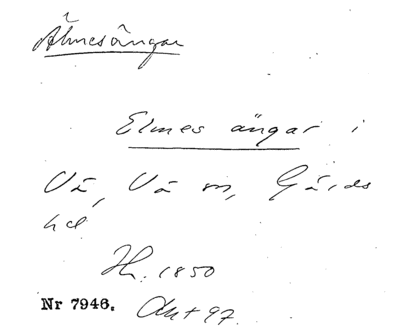 Älmesängar
Elmes ängar i
Vä, Vä sn, Gärds
hd
Hr. 1850
Nr 7946. Akt 97